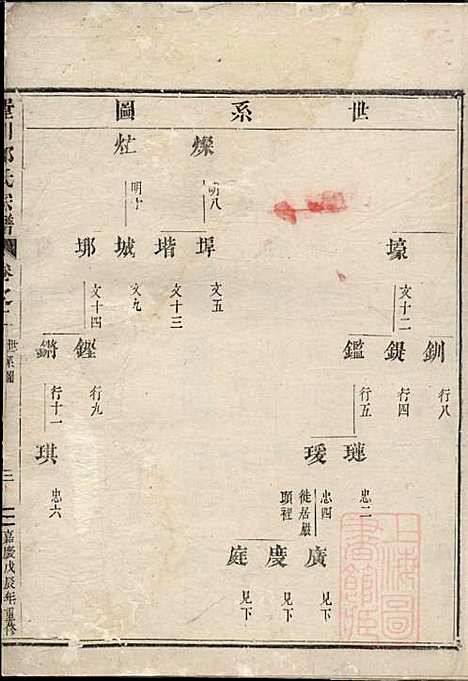 世系圖
燦 明八
烂 明十
壕 文十二
埠 文五
堦 文十三
城 文九
邺 文十四
釧 行八
鍉 行四
鑑 行五
鏗 行九
鏘 行十一
璉 忠二
瑗 忠四 徙居嚴頭裡
琪 忠六
廣 見下
慶 見下
庭 見下
氏宗譜
卷之
世系圖
三
嘉慶戊辰年重修
上海圖書館藏